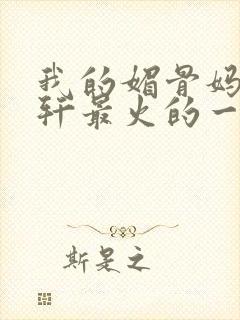 我的媚骨妈
轩最火的一
斯是之